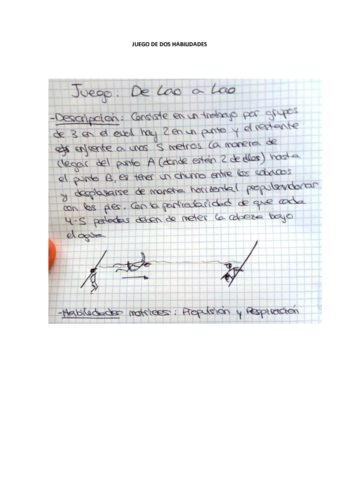 JUEGO DE DOS HABILIDADES
Juego: De Lao a Lao
-Descripcion: Consiste en un trabajo por grupos
de 3 en el cual hay 2 en un punto y el restante
enfrente a unos 5 metros. La manera de
llegar del punto A (donde están 2 de ellos) hasta
el punto B, es tener un churro entre los sobacos
y desplazarse de manera horizontal propulsandonos
con los pies. Con la particularidad de que cada
4-5 patadas deben de meter la cabeza bajo
el agua.
-Habilidades motrices: Propulsión y Respiración